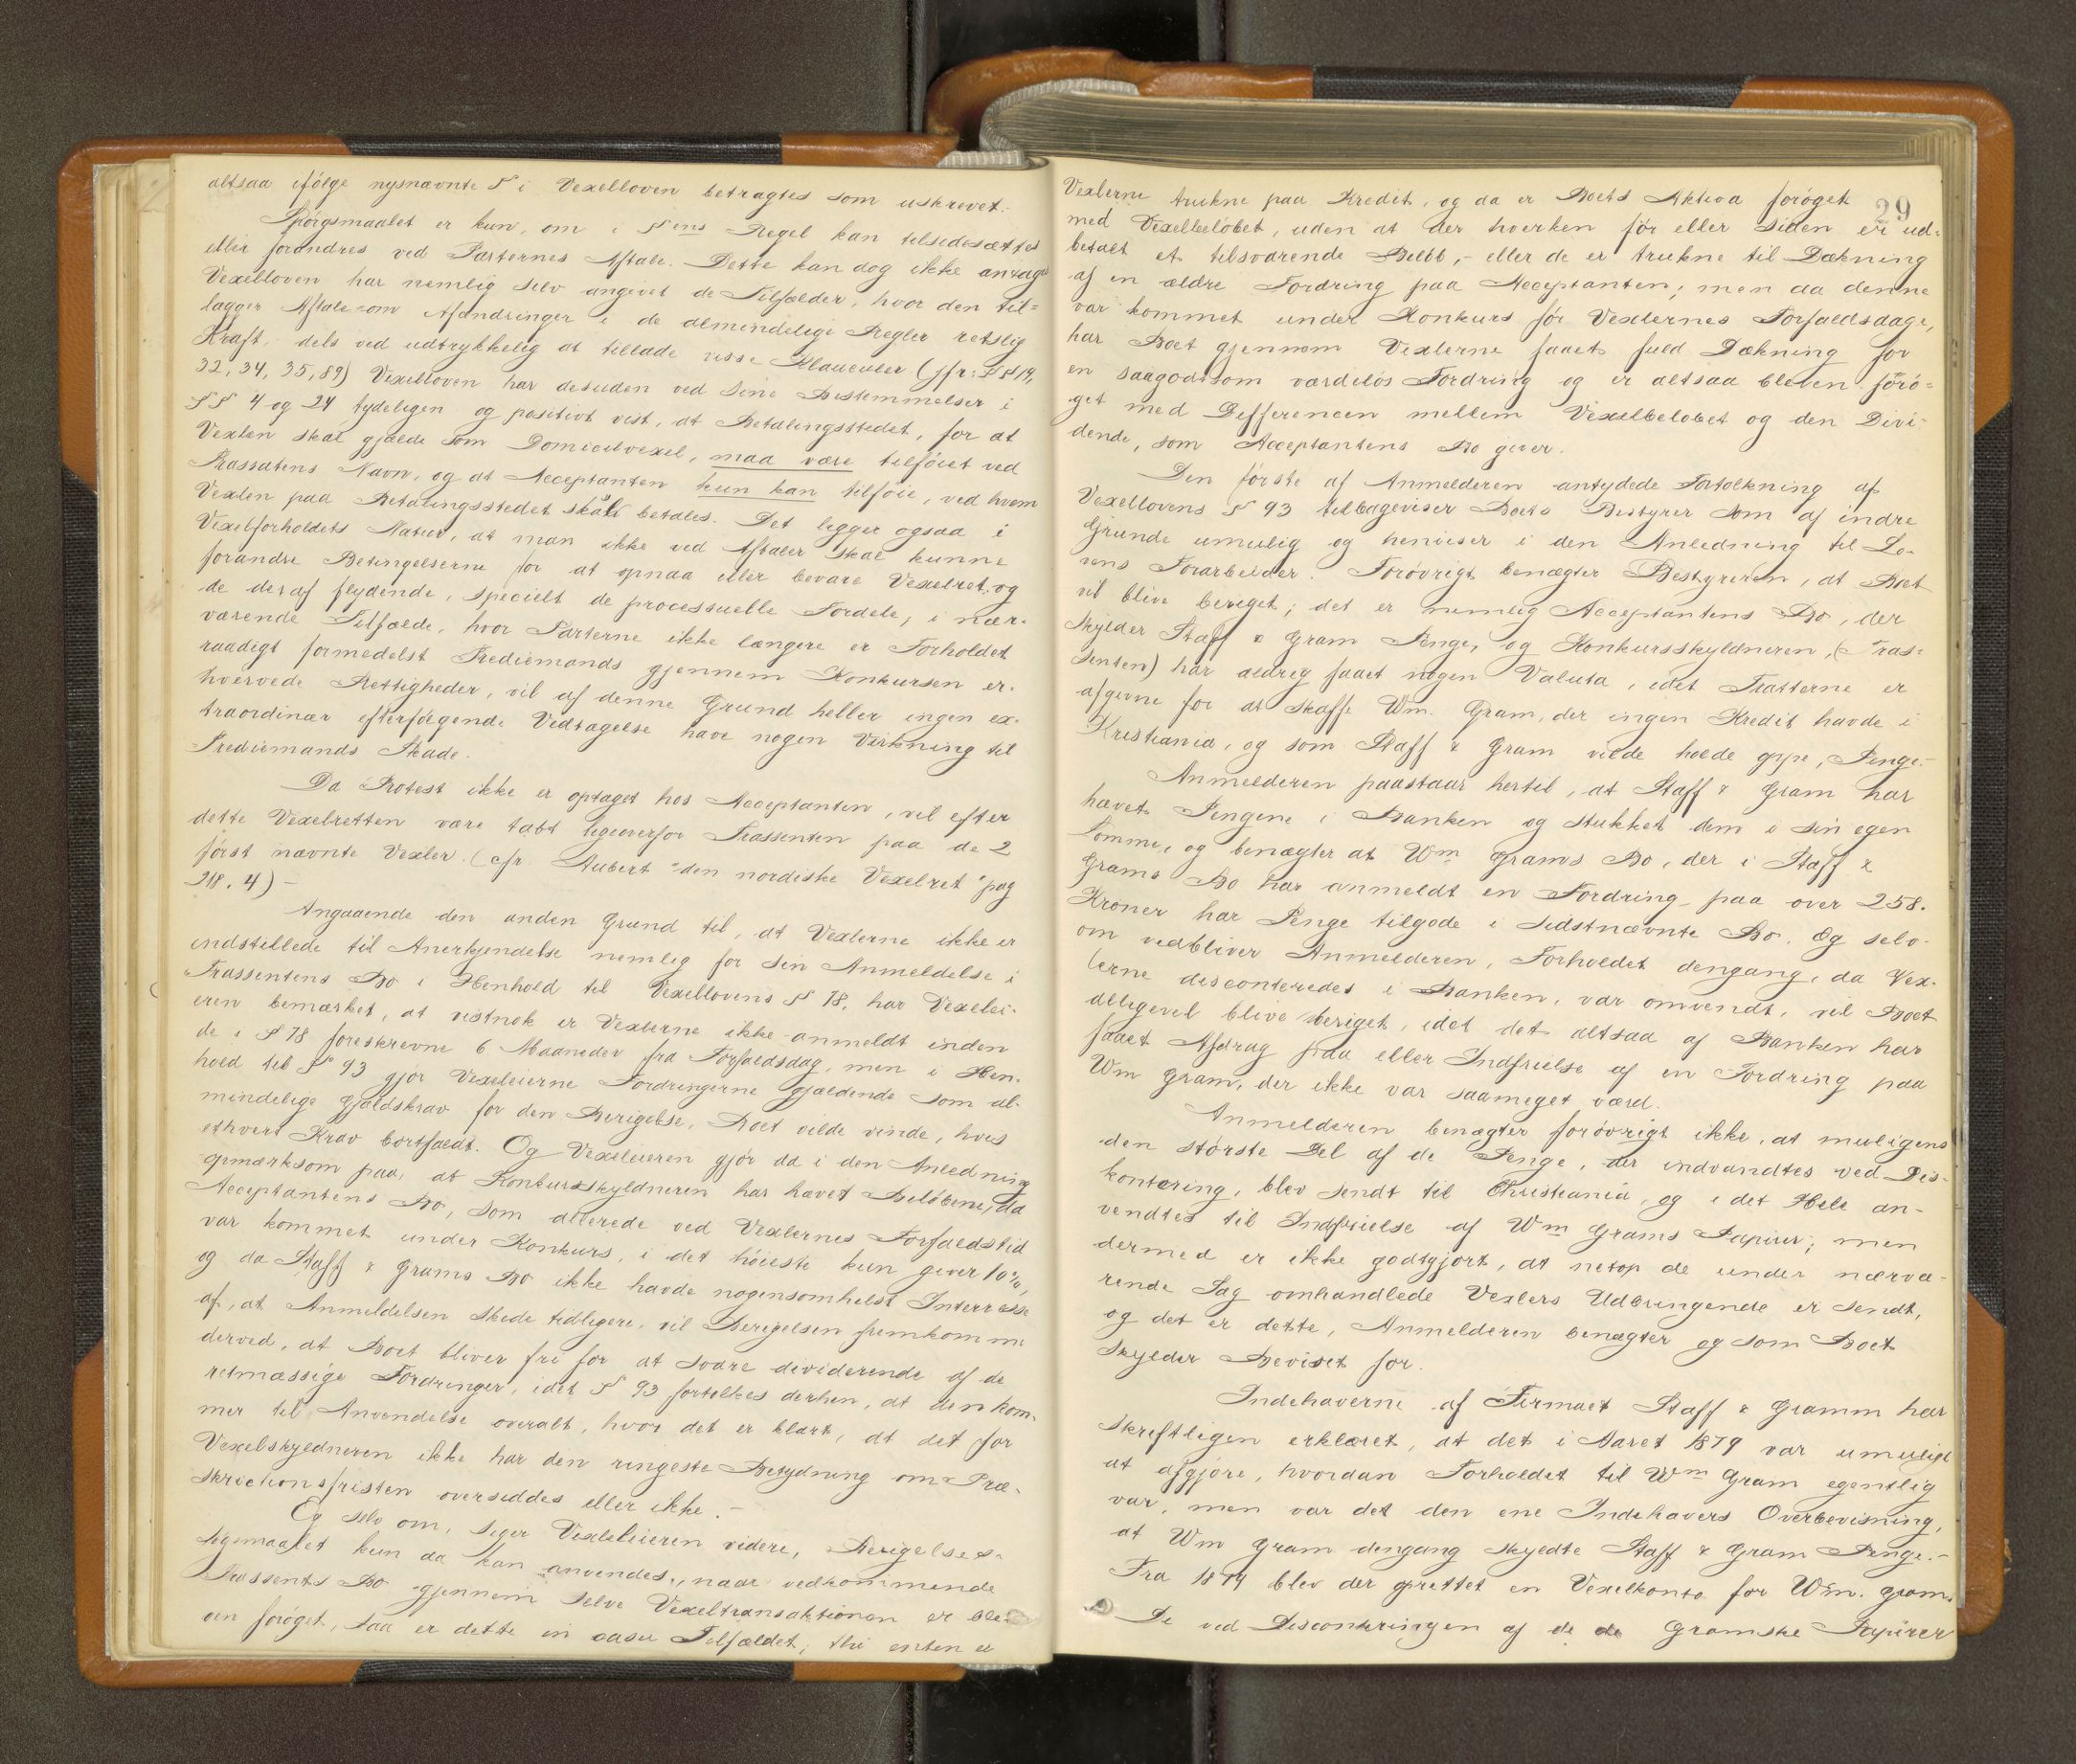 altsaa ifölge nysnævnte § i Vexelloven betragtes som uskrevet.
Spörgsmaalet er kun, om i §ens Regel kan tilsidesættes
eller forandres ved Parternes Aftale. Dette kan dog ikke antages
Vexelloven har nemlig selv angivet de Tilfælder, hvor den til=
lægger Aftale om Afændringer i de almindelige Regler retslig
Kraft, dels ved udtrykkelig at tillade visse Klauculer (jfr: §§ 19,
32, 34, 35, 89) Vexelloven har desuden ved sine Bestemmelser i
§§ 4 og 24 tydeligen og positivt vist, at Betalingsstedet, for at
Vexlen skal gjælde som Domicilvexel, maa være tilföiet ved
Trassatens Navn, og at Acceptanten kun kan tilföie, ved hvem
Vexlen paa Betalingsstedet skal betales. Det ligger ogsaa i
Vexelforholdets Natur, at man ikke ved Aftaler skal kunne
forandre Betingelserne for at opnaa eller bevare Vexelret og
de deraf flydende, specielt de processuelle Fordele; i nær-
værende Tilfælde, hvor Parterne ikke længere er Forholdet
raadigt formedelst Trediemands gjennem Konkursen er-
hvervede Rettigheder, vil af denne Grund heller ingen ex-
traordinær efterfölgende Vedtagelse have nogen Virkning til
Trediemands Skade.
Da Protest ikke er optaget hos Acceptanten, vil efter
dette Vexelretten være tabt ligeoverfor Trassenten paa de 2
först nævnte Vexler. (cfr. Aubert "den nordiske Vexelret" pag
218. 4) –
Angaaende den anden Grund til, at Vexlerne ikke er
indstillede til Anerkjendelse nemlig for sin Anmeldelse i
Trassentens Bo i Henhold til Vexellovens § 78, har Vexelei-
eren bemærket, at vistnok er Vexlerne ikke anmeldt inden
de i § 78 foreskrevne 6 Maaneder fra Forfaldsdag, men i Hen-
hold til § 93 gjör Vexeleierne Fordringerne gjældende som al-
mindelige Gjældskrav for den Berigelse, Boet vilde vinde, hvis
ethvert Krav bortfaldt. Og Vexeleieren gjör da i den Anledning
opmærksom paa, at Konkursskyldneren har hævet Belöbene, da
Acceptantens Bo, som allerede ved Vexlernes Forfaldstid
var kommet under Konkurs, i det höieste kun giver 10%,
og da Staff & Grams Bo ikke havde nogensomhelst Interresse
af, at Anmeldelsen skede tidligere, vil Berigelsen fremkomme
derved, at Boet bliver fri for at svare dividerende af de
retmæssige Fordringer, idet § 93 fortolkes derhen, at den kom-
mer til Anvendelse overalt, hvor det er klart, at det for
Vexelskyldneren ikke har den ringeste Betydning om Præ-
skrictionsfristen oversiddes eller ikke. –
Og selv om, siger Vexeleieren videre, Berigelses-
sögsmaalet kun da kan anvendes, naar vedkommende
Trassents Bo gjennem selve Vexeltransaktionen er ble-
ven foröget, saa er dette in casu Tilfældet; thi enten er
29
Vexlerne trukne paa Kredit, og da er Boets Aktiva foröget
med Vexelbelöbet, uden at der hverken för eller siden er ud-
betalt et tilsvarende Belöb, – eller de er trukne til Dækning
af en ældre Fordring paa Acceptanten; men da denne
var kommet under Konkurs för Vexlernes Forfaldsdage,
har Boet gjennem Vexlerne faaet fuld Dækning for
en saagodtsom værdilös Fordring og er altsaa bleven forö=
get med Differencen mellem Vexelbelöbet og den Divi-
dende, som Acceptantens Bo giver.
Den förste af Anmelderen antydede Fortolkning af
Vexellovens § 93 tilbageviser Boets Bestyrer som af indre
Grunde umulig og henviser i den Anledning til Lo-
vens Forarbeider. Forövrigt benægter Bestyreren, at Boet
vil blive beriget; det er nemlig Acceptantens Bo, der
skylder Staff & Gram Penge, og Konkursskyldneren, (Tras-
senten) har aldrig faaet nogen Valuta, idet Tratterne er
afgivne for at skaffe Wm. Gram, der ingen Kredit havde i
Kristiania, og som Staff & Gram vilde holde oppe, Penge. –
Anmelderen paastaar hertil, at Staff & Gram har
hævet Pengene i Banken og stukket dem i sin egen
Lomme, og benægter at Wm Grams Bo, der i Staff &
Grams Bo har anmeldt en Fordring paa over 258.
Kroner har Penge tilgode i sidstnævnte Bo. Og selv
om vedbliver Anmelderen, Forholdet dengang, da Vex-
lerne disconteredes i Banken, var omvendt, vil Boet
alligevel blive beriget, idet det altsaa af Banken har
faaet Afdrag paa eller Indfrielse af en Fordring paa
Wm Gram, der ikke var saameget værd.
Anmelderen benægter forövrigt ikke, at muligens
den störste Del af de Penge, der indvandtes ved Dis-
kontering, blev sendt til Christiania, og i det Hele an-
vendtes til Indfrielse af Wm Grams Papirer; men
dermed er ikke godtgjort, at netop de under nærvæ-
rende Sag omhandlede Vexlers Udbringende er sendt,
og det er dette, Anmelderen benægter og som Boet
skylder Beviset for.
Indehaverne af Firmaet Staff & Gramm har
skriftligen erklæret, at det i Aaret 1879 var umuligt
at afgjöre, hvordan Forholdet til Wm Gram egentlig
var, men var det den ene Indehavers Overbevisning,
at Wm Gram dengang skyldte Staff & Gram Penge. –
Fra 1879 blev der oprettet en Vexelkonto for Wm. Gram.
De ved Disconteringen af de de Gramske Papirer